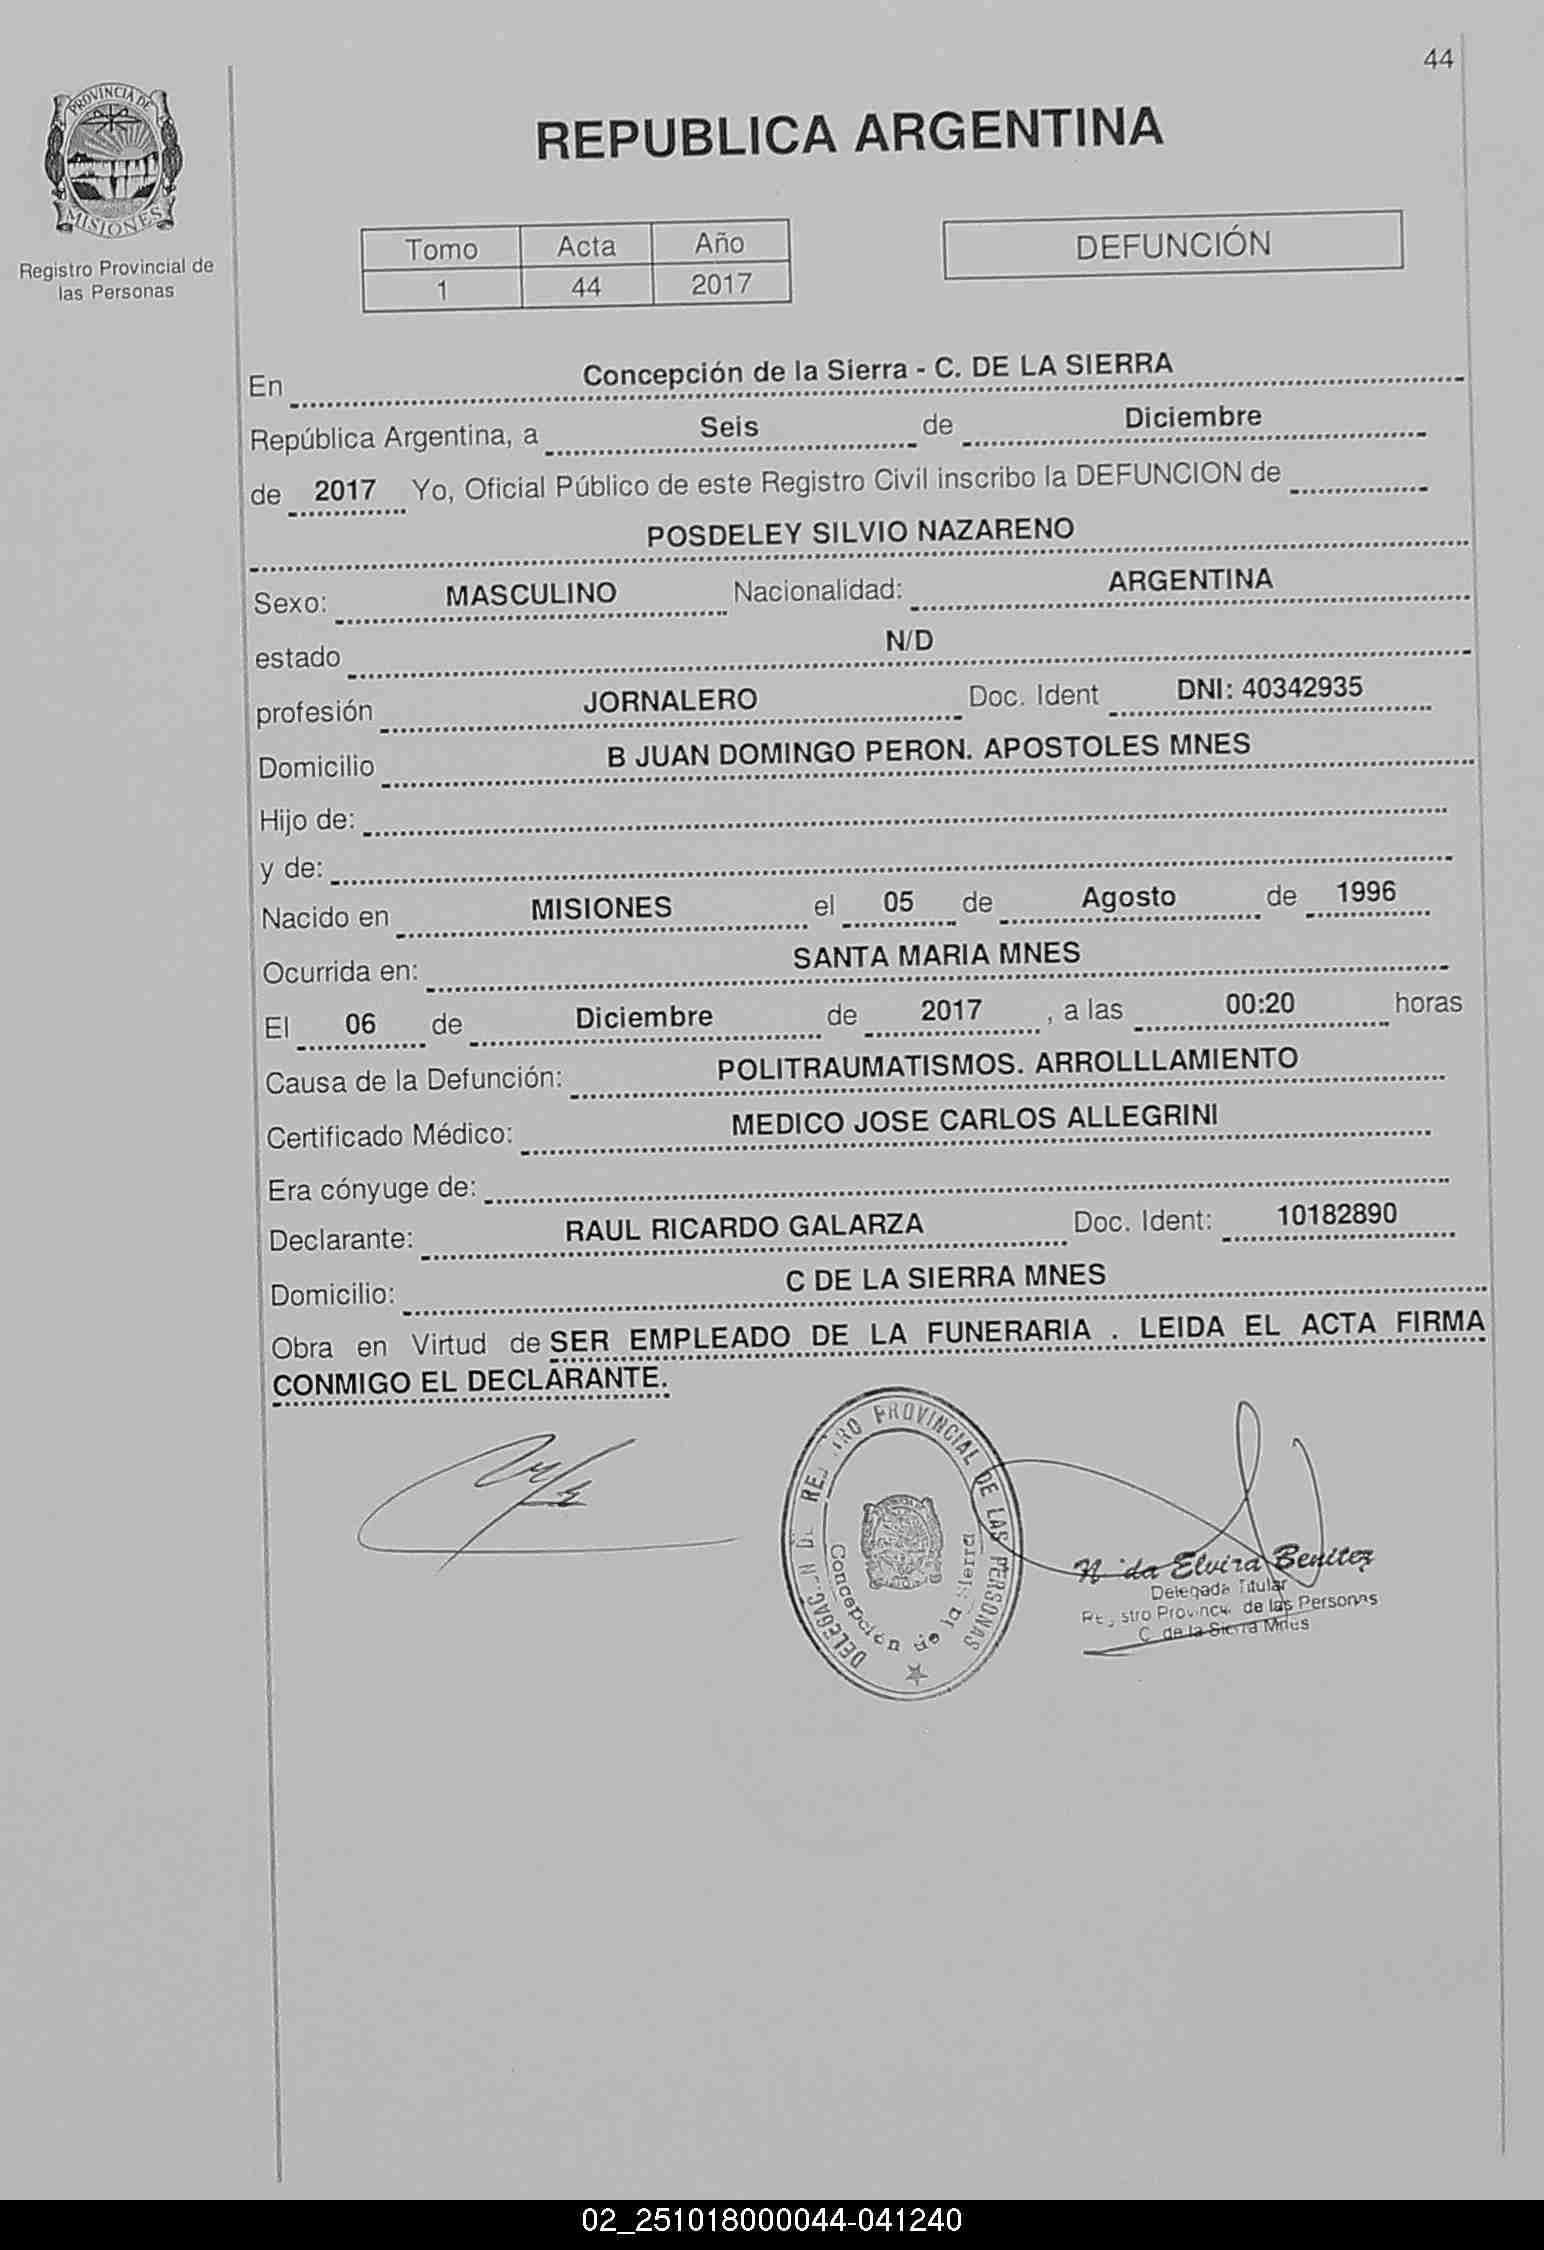 44
PROVINCIA DE
MISIONES
Registro Provincial de
las Personas
REPUBLICA ARGENTINA
Tomo Acta Año
1 44 2017
DEFUNCIÓN
En Concepción de la Sierra - C. DE LA SIERRA
República Argentina, a Seis de Diciembre
de 2017 Yo, Oficial Público de este Registro Civil inscribo la DEFUNCION de
POSDELEY SILVIO NAZARENO
Sexo: MASCULINO Nacionalidad: ARGENTINA
estado N/D
profesión JORNALERO Doc. Ident DNI: 40342935
Domicilio B JUAN DOMINGO PERON. APOSTOLES MNES
Hijo de:
y de:
Nacido en MISIONES el 05 de Agosto de 1996
Ocurrida en: SANTA MARIA MNES
El 06 de Diciembre de 2017 , a las 00:20 horas
Causa de la Defunción: POLITRAUMATISMOS. ARROLLLAMIENTO
Certificado Médico: MEDICO JOSE CARLOS ALLEGRINI
Era cónyuge de:
Declarante: RAUL RICARDO GALARZA Doc. Ident: 10182890
Domicilio: C DE LA SIERRA MNES
Obra en Virtud de SER EMPLEADO DE LA FUNERARIA . LEIDA EL ACTA FIRMA
CONMIGO EL DECLARANTE.
PROVINCIAL DE LAS PERSONAS
Concepción de la Sierra
Elvira Benitez
Delegada Titular
de las Personas
C. de la Sierra Mnes
02_251018000044-041240